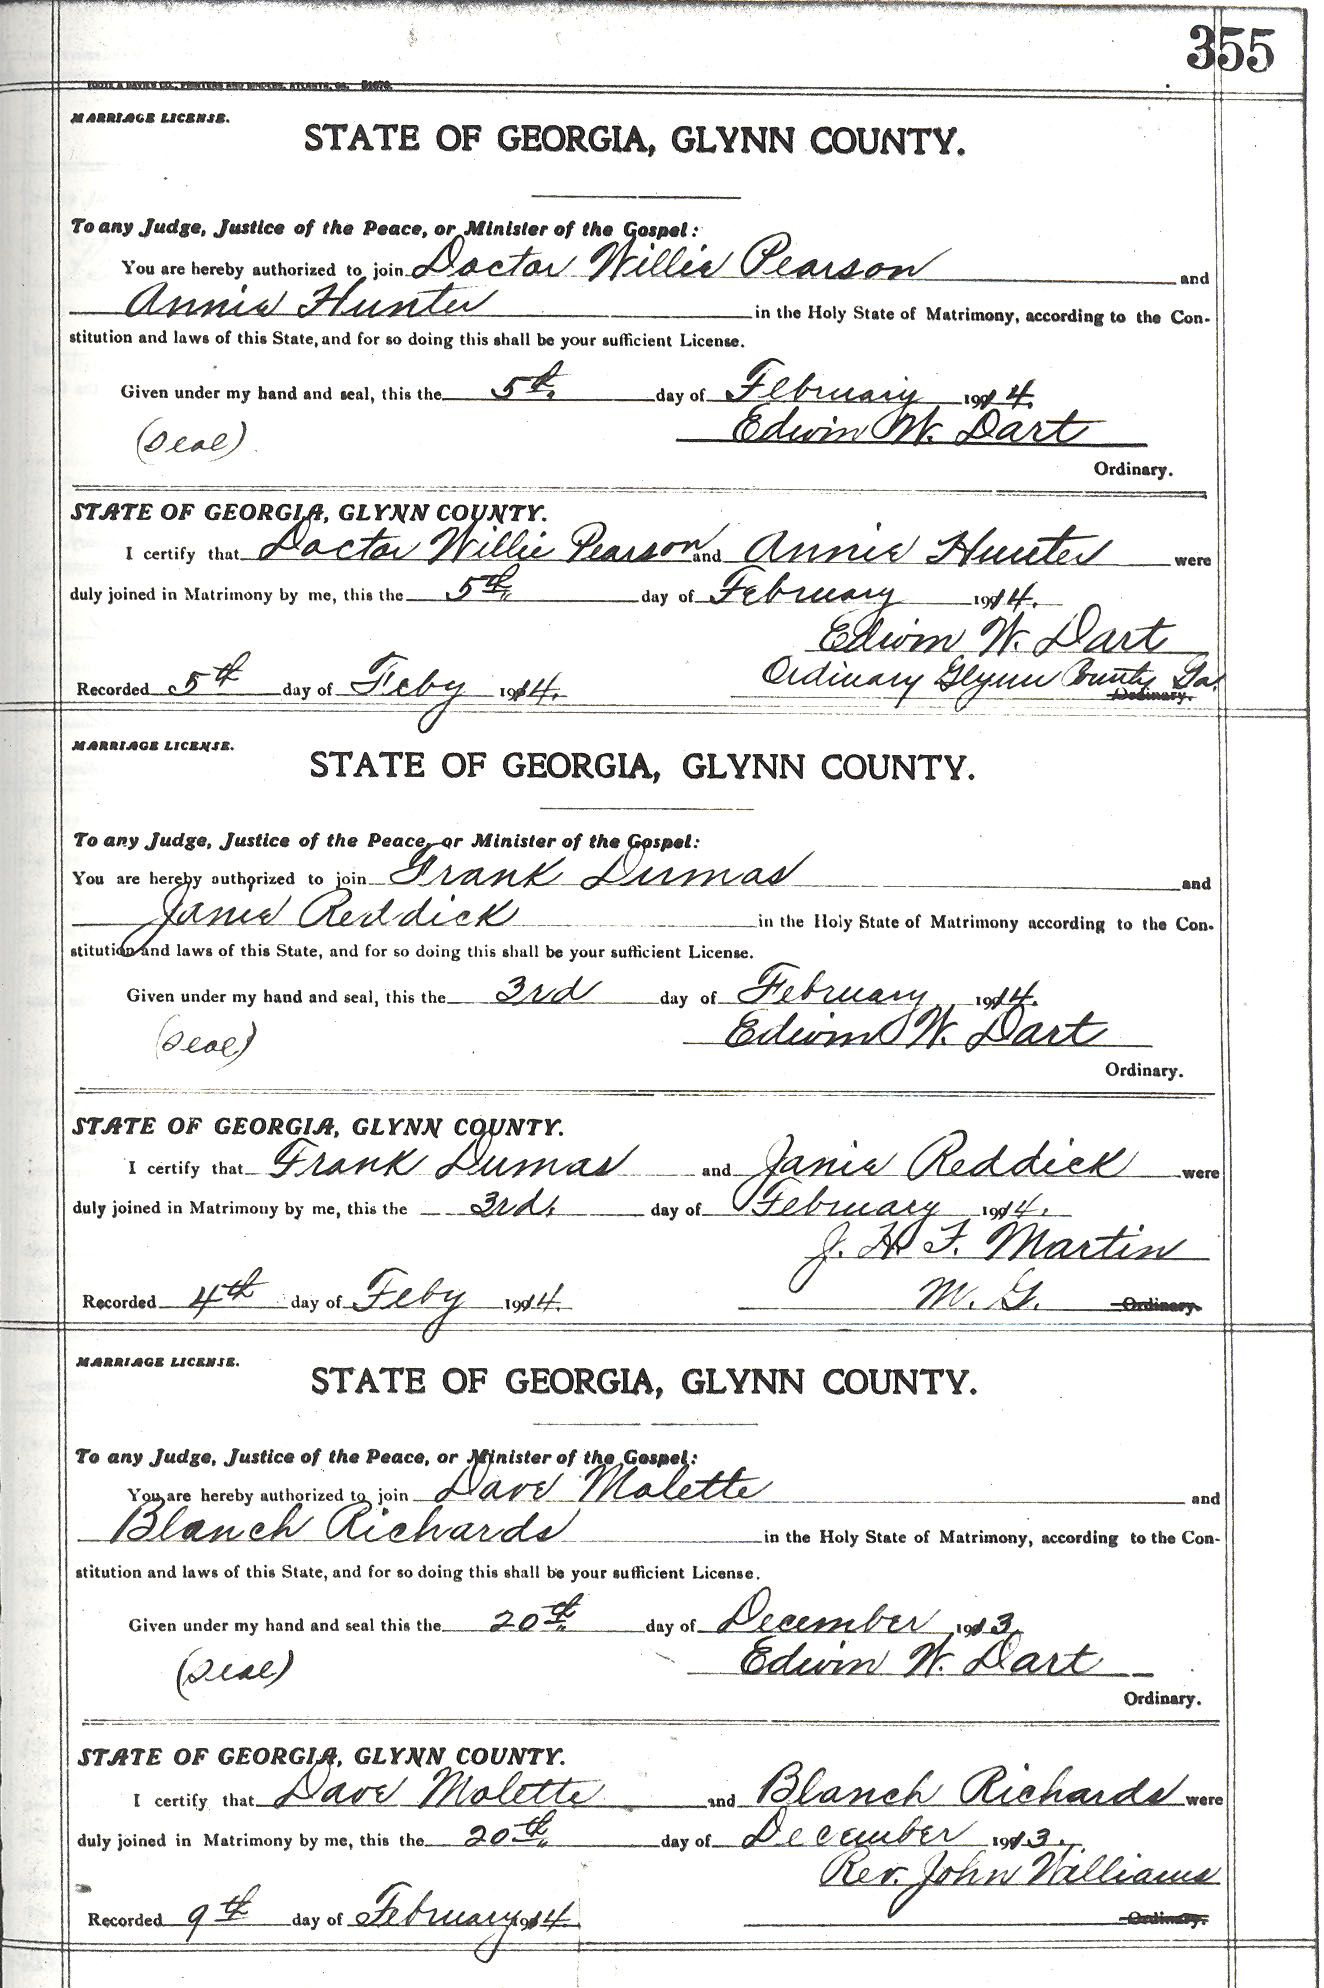 355
FOOTE & DAVIES CO., PRINTERS AND BINDERS, ATLANTA, GA. 51676.
MARRIAGE LICENSE.
STATE OF GEORGIA, GLYNN COUNTY.
To any Judge, Justice of the Peace, or Minister of the Gospel:
You are hereby authorized to join Doctor Willie Pearson and
Annie Hunter in the Holy State of Matrimony, according to the Con-
stitution and laws of this State, and for so doing this shall be your sufficient License.
Given under my hand and seal, this the 5th. day of February 1914.
(Seal) Edwin W. Dart
Ordinary.
STATE OF GEORGIA, GLYNN COUNTY.
I certify that Doctor Willie Pearson and Annie Hunter were
duly joined in Matrimony by me, this the 5th. day of February 1914.
Edwin W. Dart
Ordinary Glynn County Ga.
Recorded 5th day of Feby 1914. Ordinary.
MARRIAGE LICENSE.
STATE OF GEORGIA, GLYNN COUNTY.
To any Judge, Justice of the Peace, or Minister of the Gospel:
You are hereby authorized to join Frank Dumas and
Janie Reddick in the Holy State of Matrimony according to the Con-
stitution and laws of this State, and for so doing this shall be your sufficient License.
Given under my hand and seal, this the 3rd day of February 1914.
(Seal) Edwin W. Dart
Ordinary.
STATE OF GEORGIA, GLYNN COUNTY.
I certify that Frank Dumas and Janie Reddick were
duly joined in Matrimony by me, this the 3rd. day of February 1914.
J. H. F. Martin
Recorded 4th day of Feby 1914. M. G. Ordinary.
MARRIAGE LICENSE.
STATE OF GEORGIA, GLYNN COUNTY.
To any Judge, Justice of the Peace, or Minister of the Gospel:
You are hereby authorized to join Dave Molette and
Blanch Richards in the Holy State of Matrimony, according to the Con-
stitution and laws of this State, and for so doing this shall be your sufficient License.
Given under my hand and seal this the 20th. day of December 1913.
(Seal) Edwin W. Dart
Ordinary.
STATE OF GEORGIA, GLYNN COUNTY.
I certify that Dave Molette and Blanch Richards were
duly joined in Matrimony by me, this the 20th. day of December 1913.
Rev. John Williams
Recorded 9th day of February 1914 Ordinary.